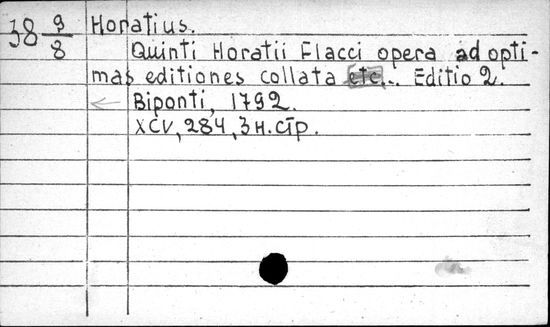 38 9/8 Horatius.
Quinti Horatii Flacci opera ad opti-
mas editiones collata etc... Editio 2.
Biponti, 1792.
XCV, 284, 3 н. стр.